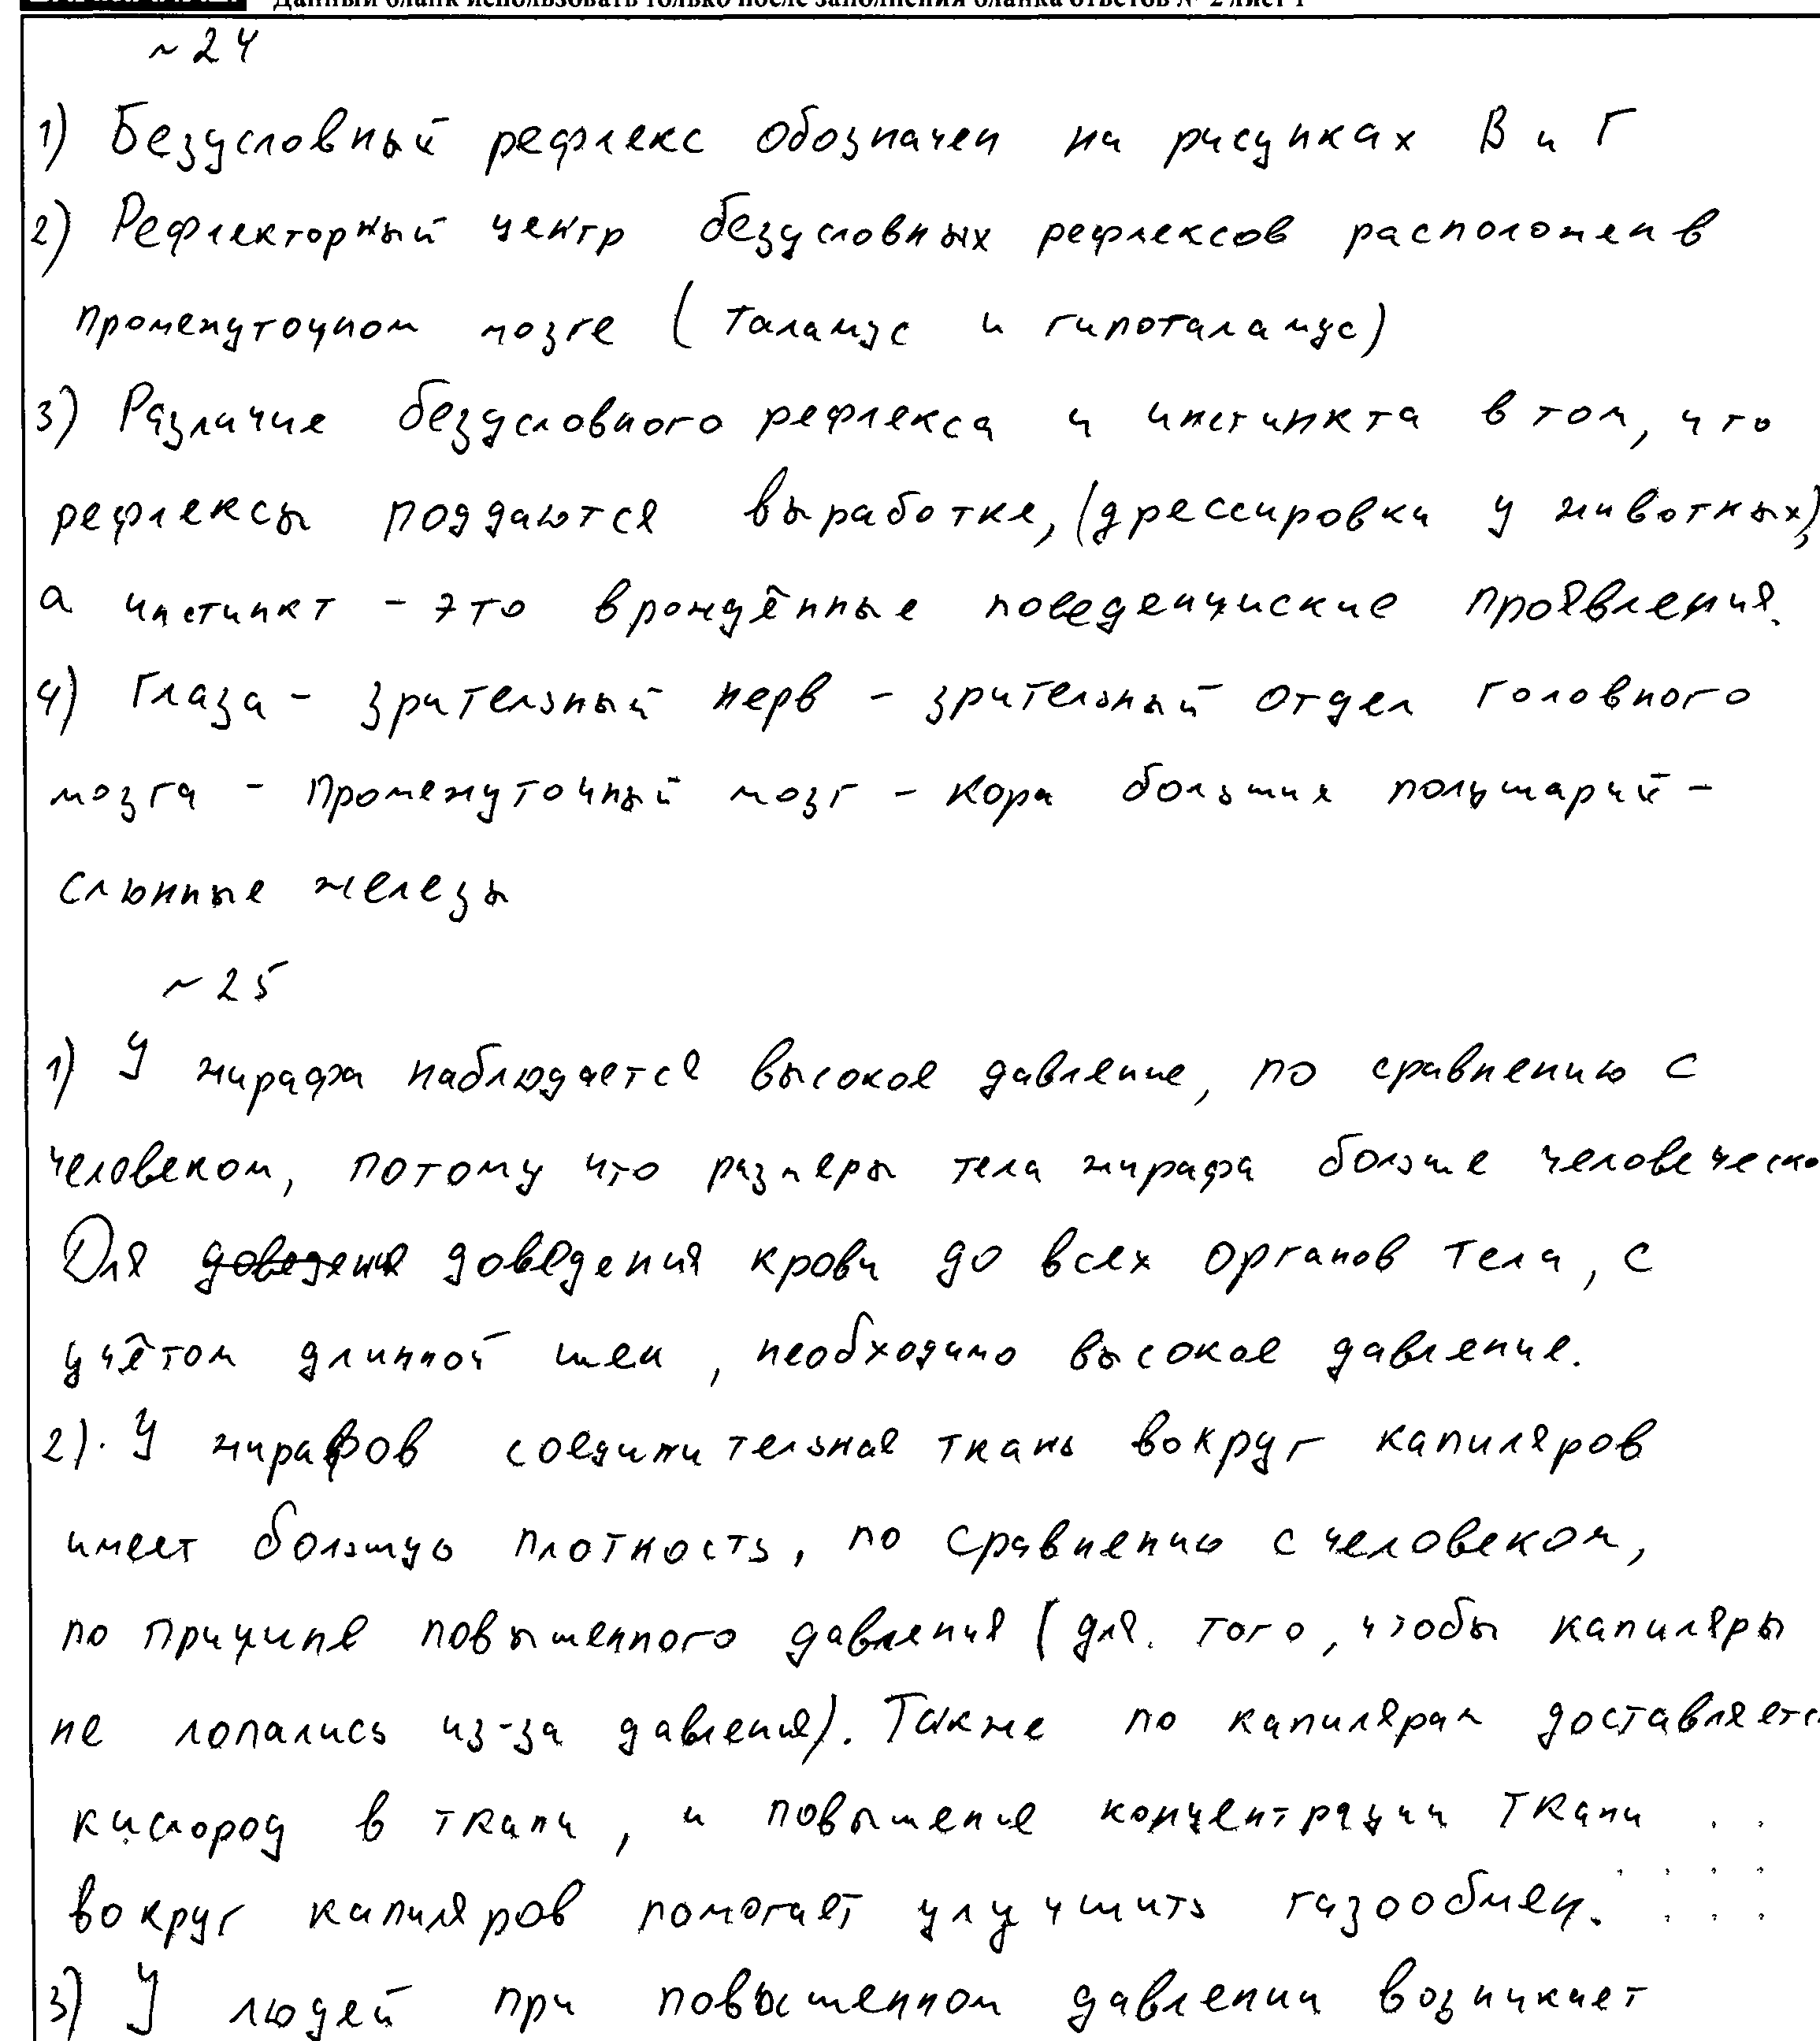 Данный бланк использовать только после заполнения бланка ответов № 2 лист 1
~24
1) Безусловный рефлекс обозначен на рисунках В и Г
2) Рефлекторный центр безусловных рефлексов расположен в
промежуточном мозге (таламус и гипоталамус)
3) Различие безусловного рефлекса и инстинкта в том, что
рефлексы поддаются выработке, (дрессировки у животных),
а инстинкт - это врождённые поведенциские проявления.
4) Глаза - зрительный нерв - зрительный отдел головного
мозга - промежуточный мозг - кора больших полушарий -
слюнные железы
~25
1) У жирафа наблюдается высокое давление, по сравнению с
человеком, потому что размеры тела жирафа больше человеческо
Для доведения доведения крови до всех органов тела, с
учётом длинной шеи, необходимо высокое давление.
2). У жирафов соединительная ткань вокруг капиляров
имеет большую плотность, по сравнению с человеком,
по причине повышенного давления (для. того, чтобы капиляры
не лопались из-за давления). Также по капилярам доставляетс
кислород в ткани, и повышение концентрации ткани
вокруг капиляров помогает улучшить газообмен.
3) У людей при повышенном давлении возникает